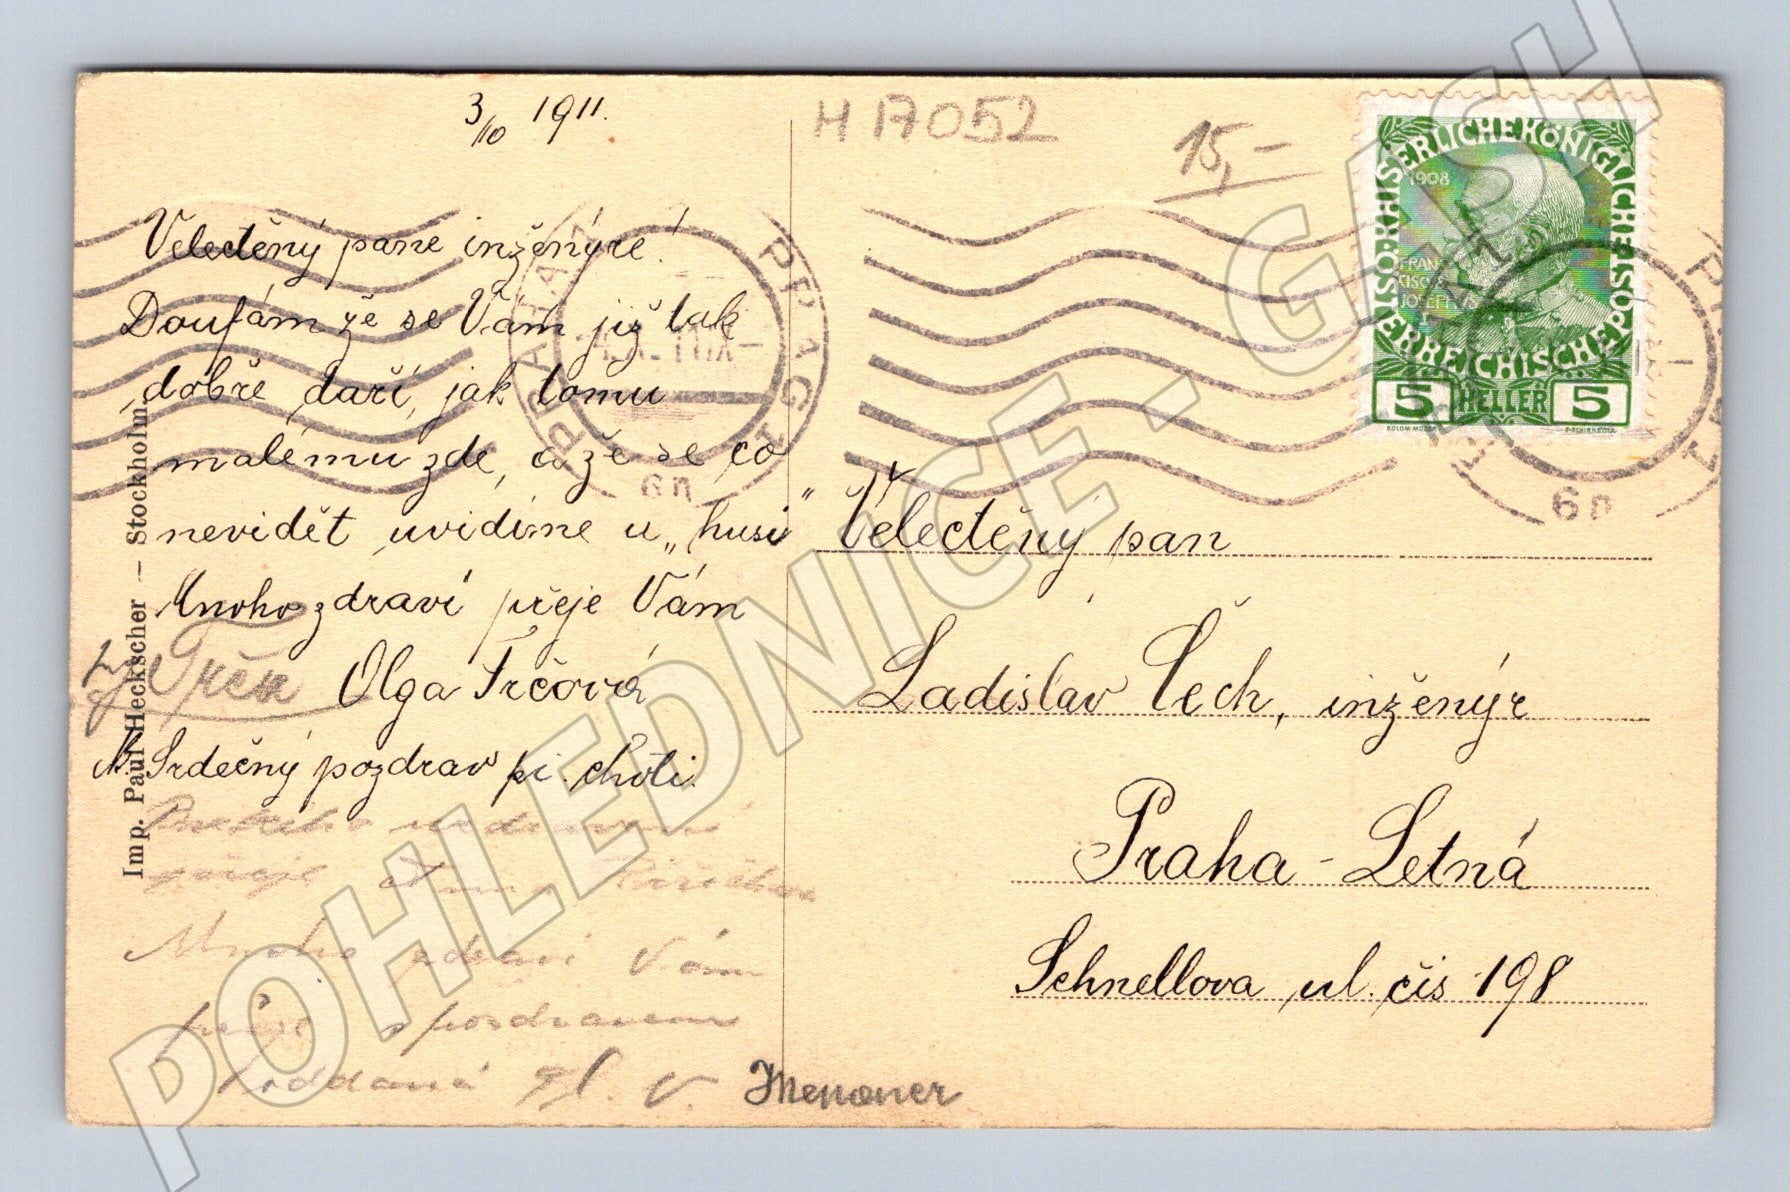 3/10 1911.
H 17052
15,-
Velectěný pane inženýre!
Doufám že se Vám již tak
dobře daří, jak tomu
malému zde, a že se co
nevidět uvidíme u „husi"
Mnoho zdraví přeje Vám
Olga Trčová
Trčka
Srdečný pozdrav pí. choti.
přeje
Mnoho zdraví Vám
přeje s pozdravem
oddaná
Imp. Paul Heckscher – Stockholm.
PRAHA 7 PRAG 7
6n
KAISERLICHE KÖNIGLICHE ÖSTERREICHISCHE POST
1908
FRANCISCUS JOSEPHUS
5 HELLER 5
6n
Velectěný pan
Ladislav Čech, inženýr
Praha - Letná
Schnellova ul. čis 198
POHLEDNICE - GASH